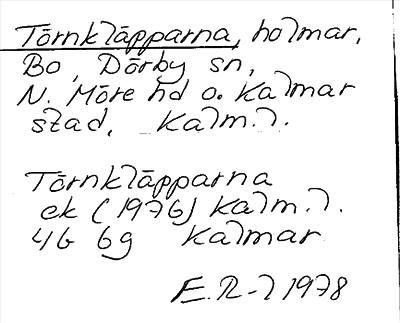 Törnkläpparna, holmar,
Bo, Dörby sn,
N. Möre hd o. Kalmar
stad, Kalm. l.
Törnkläpparna
ek (1976) Kalm. l.
4G 6g Kalmar
E. R-l 1978